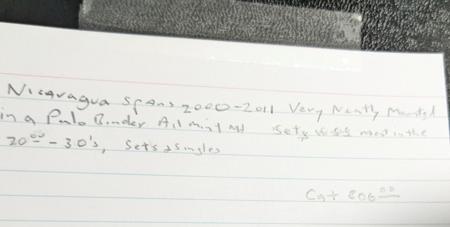 Nicaragua spans 2000-2011 Very Neatly Mounted
in a Palo Binder All mint NH Sets most in the
20⁰⁰ - 30's, Sets & Singles
Cat 806⁰⁰